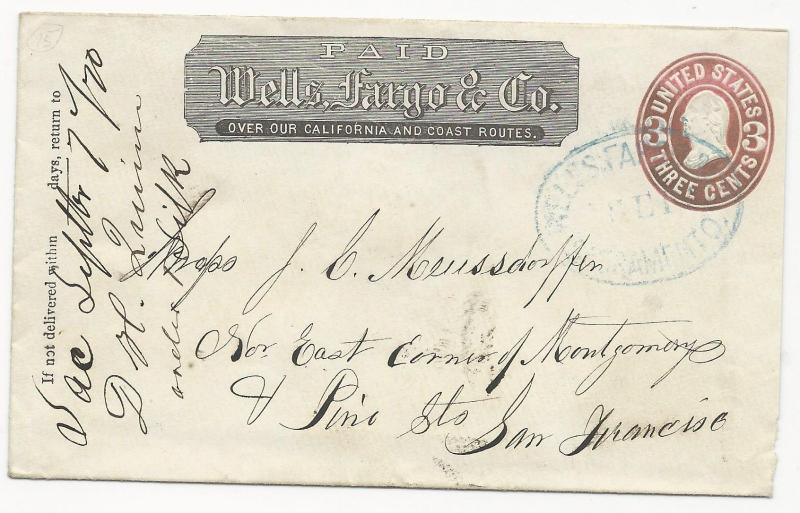 PAID
Wells, Fargo & Co.
OVER OUR CALIFORNIA AND COAST ROUTES.
UNITED STATES
3 3
THREE CENTS
WELLS, FA
SACRAMENTO
If not delivered within days, return to
Sac Septbr 7/70
D H. Quinn
order
15
J. C. Meussdorffer
Nor East Corner of Montgomery
& Pine Sts San Francisco